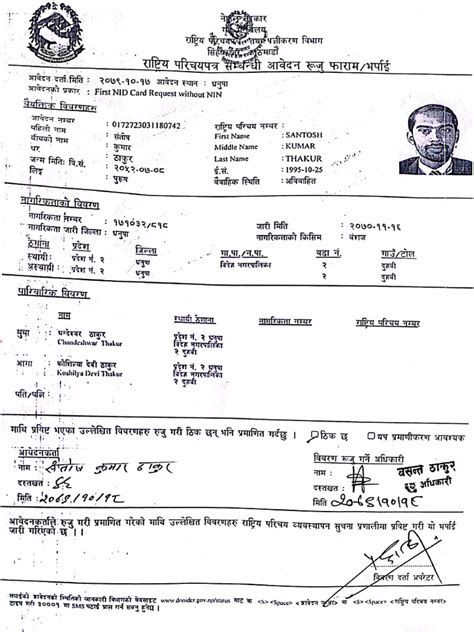 नेपाल सरकार
राष्ट्रिय परिचयपत्र तथा पञ्जीकरण विभाग
सिंहदरबार, काठमाडौं
राष्ट्रिय परिचयपत्र सम्बन्धी आवेदन रूजु फाराम/भर्पाई
आवेदन दर्ता मिति : २०७९-१०-१७ आवेदन स्थान : धनुषा
आवेदनको प्रकार : First NID Card Request without NIN
वैयक्तिक विवरणहरू
आवेदन नम्बर : 0172723031180742 राष्ट्रिय परिचय नम्बर :
पहिलो नाम : संतोष First Name : SANTOSH
बीचको नाम : कुमार Middle Name : KUMAR
थर : ठाकुर Last Name : THAKUR
जन्म मिति: वि.सं. : २०५२-०७-०८ ई.सं. : 1995-10-25
लिङ्ग : पुरूष वैवाहिक स्थिति : अविवाहित
नागरिकताको विवरण
नागरिकता नम्बर : १७१०३२/८१८ जारी मिति : २०७०-११-१६
नागरिकता जारी जिल्ला : धनुषा नागरिकताको किसिम : वंशज
ठेगाना प्रदेश जिल्ला गा.पा./न.पा. वडा नं. गाउँ/टोल
स्थायी: प्रदेश नं. २ धनुषा विदेह नगरपालिका २ दुहवी
अस्थायी: प्रदेश नं. २ धनुषा २ दुहवी
पारिवारिक विवरण
नाम स्थायी ठेगाना नागरिकता नम्बर राष्ट्रिय परिचय नम्बर
चन्देश्वर ठाकुर प्रदेश नं. २ धनुषा
Chandeshwar Thakur विदेह नगरपालिका
२ दुहवी
कौशिल्या देवी ठाकुर प्रदेश नं. २ धनुषा
Koshilya Devi Thakur विदेह नगरपालिका
२ दुहवी
पति/पत्नि:
माथि प्रविष्ट भएका उल्लेखित विवरणहरू रुजु गरी ठिक छन् भनि प्रमाणित गर्दछु । ठिक छ थप प्रमाणीकरण आवश्यक
आवेदनकर्ता विवरण रूजु गर्ने अधिकारी
नाम : संतोष कुमार ठाकुर नाम : वसन्त ठाकुर
दस्तखत : दस्तखत : अधिकारी
मिति : मिति :
आवेदनकर्ताले रुजु गरी प्रमाणित गरेको माथि उल्लेखित विवरणहरू राष्ट्रिय परिचय व्यवस्थापन सुचना प्रणालीमा प्रविष्ट गरी यो भर्पाई
जारी गरिएको छ ।
विवरण दर्ता अपरेटर
तपाईको आवेदनको स्थितिको जानकारी विभागको वेबसाइट www.donidcr.gov.np/status बाट वा <S><Space> <आवेदन नम्बर> वा <S><Space> <राष्ट्रिय परिचय नम्बर>
टाइप गरी ३०००१ मा SMS पठाई प्राप्त गर्न सक्नु हुनेछ।